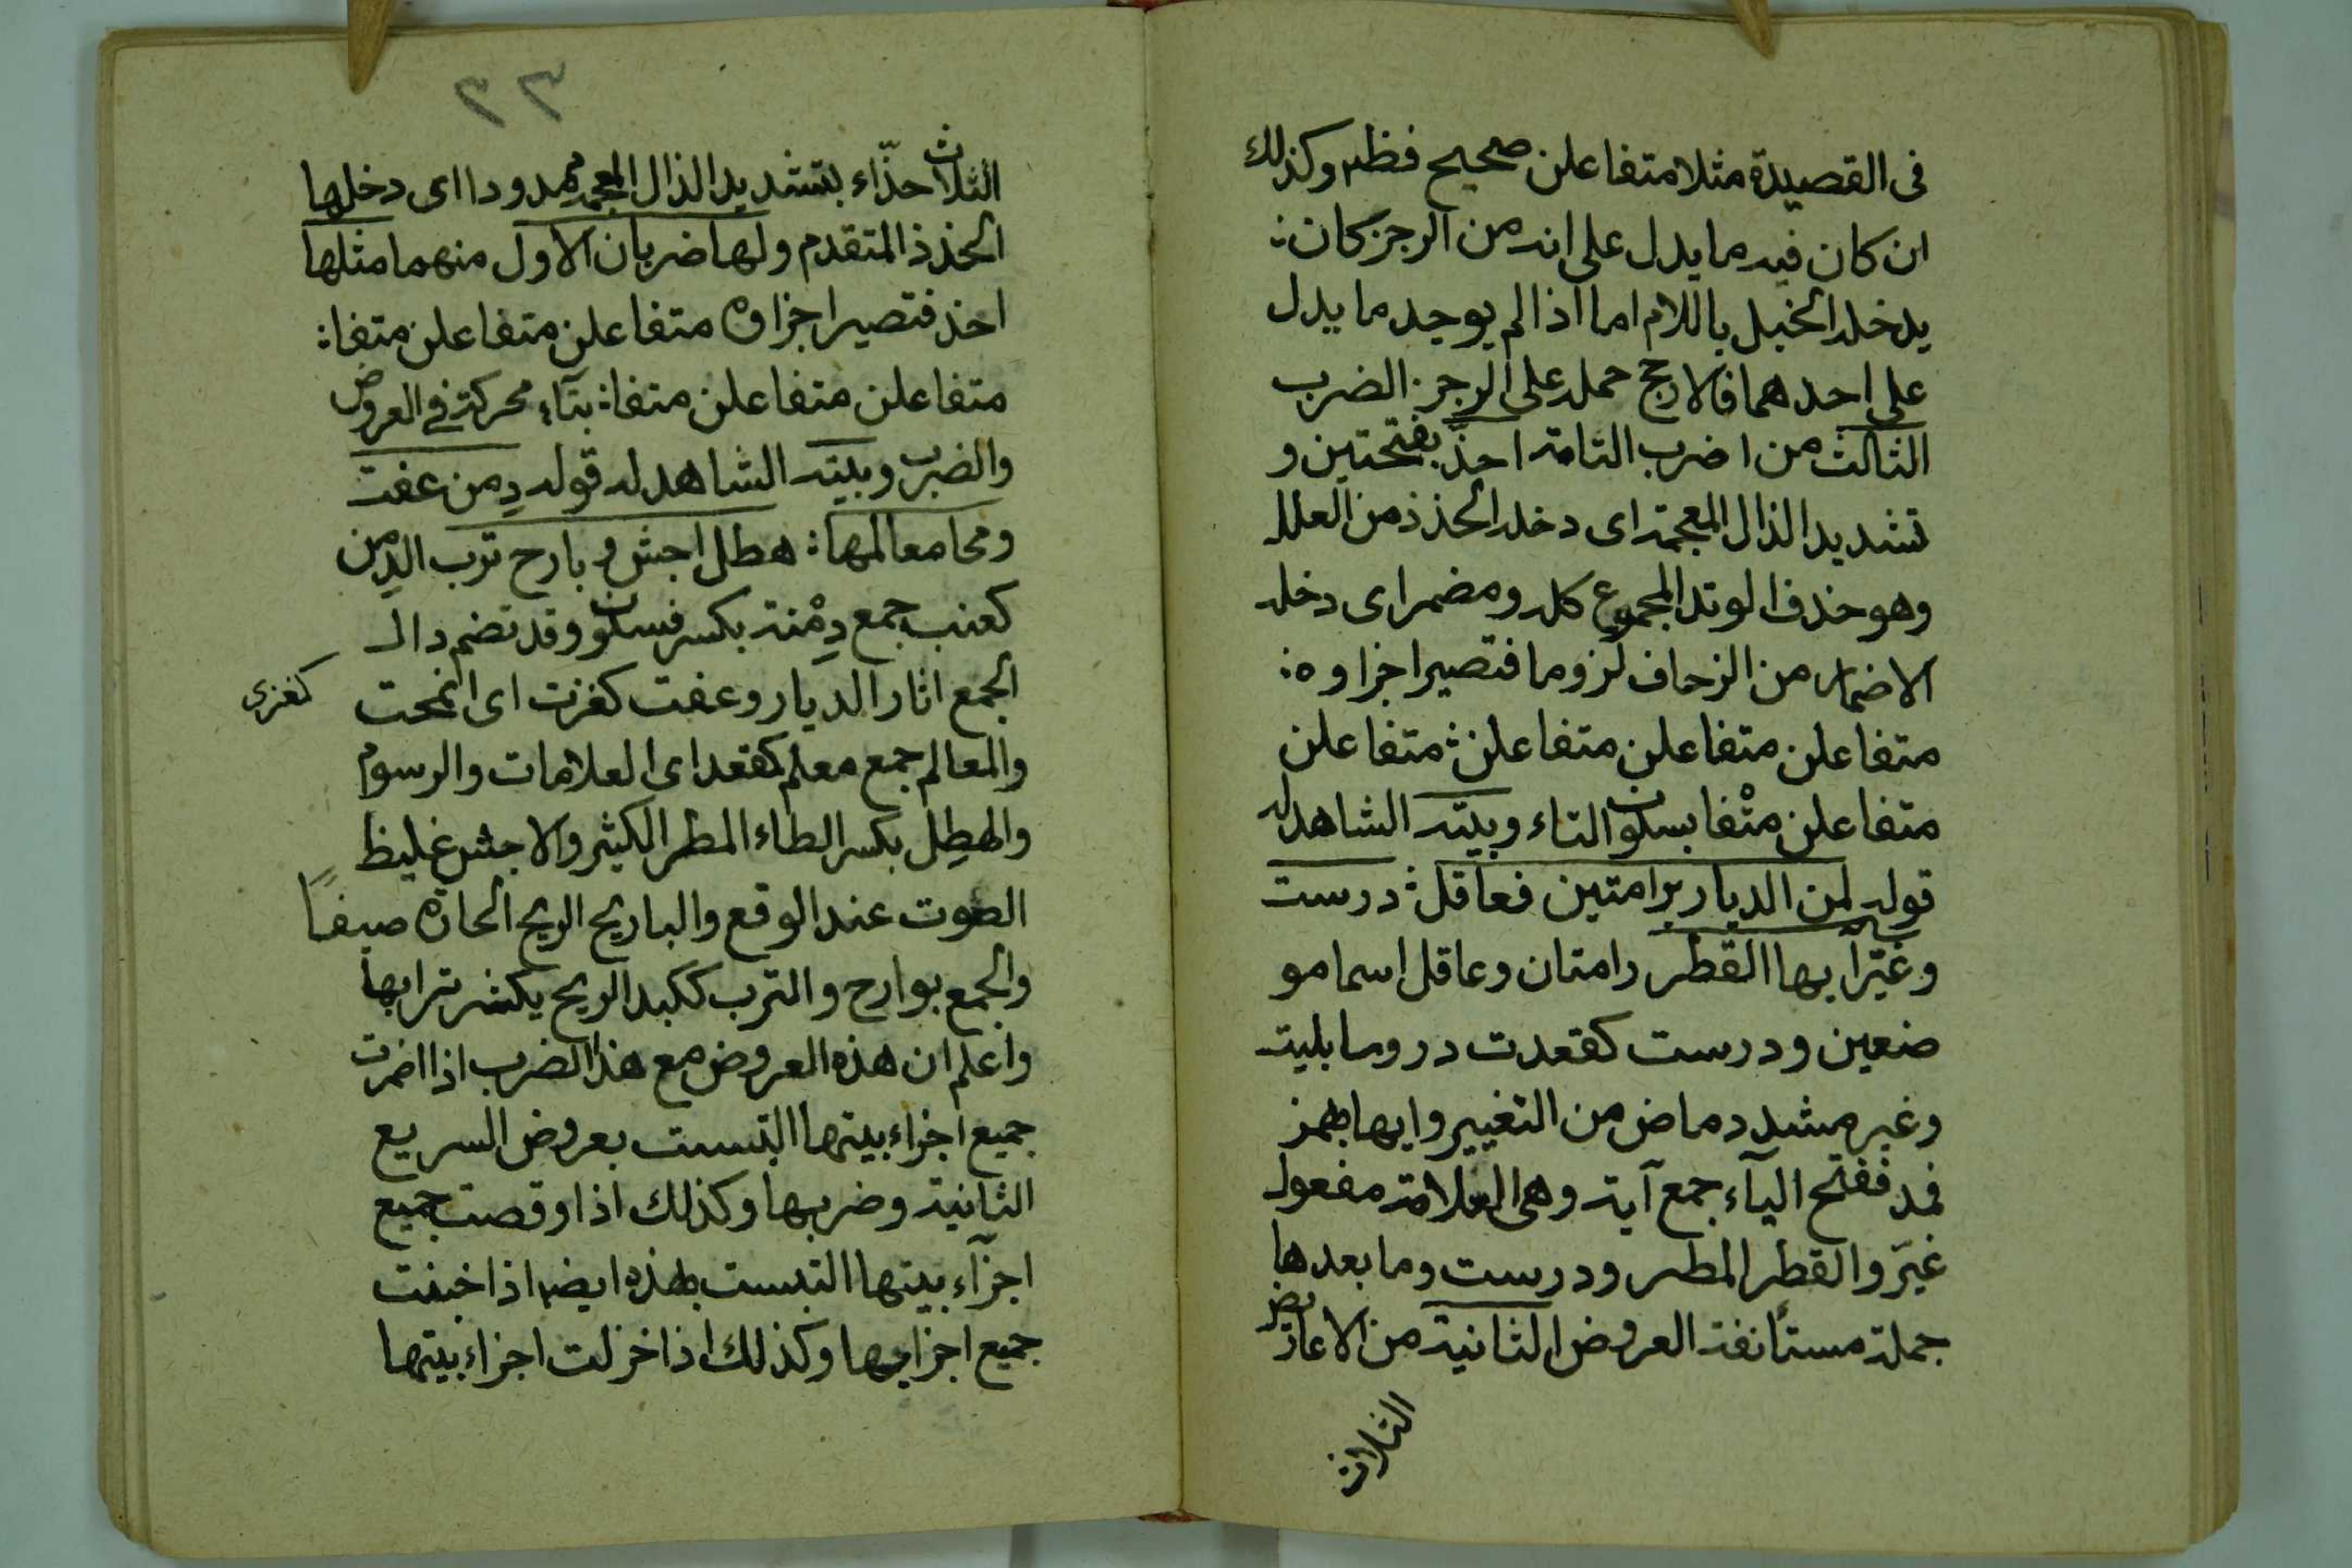 فى القصيدة مثلا متفاعلن صحيح فظهر وكذلك
ان كان فيه ما يدل على انه من الرجز كان:
يدخله الخبل باللام اما اذا لم يوجد ما يدل
على احدهما فالارجح حمله على الرجز. الضرب
الثالث من اضرب التامة احذّ بفتحتين و
تشديد الذال المعجمة اى دخله الحذذ من العلل
وهو حذف الوتد المجموع كله ومضمر اى دخله
الاضمار من الزحاف لزوما فتصير اجزاوه:
متفاعلن متفاعلن متفاعلن: متفاعلن
متفاعلن متْفا بسكون التاء وبيته الشاهد له
قوله لمن الديار برامتين فعاقل: درست
وغيّر آيها القطر رامتان وعاقل اسما مو
ضعين ودرست كقعدت دروسا بليت
وغير مشدد ماض من التغيير وايها بهمز
فمد ففتح اليآء جمع آية وهى العلامة مفعول
غيّر والقطر المطر ودرست وما بعدها
جملة مستأنفة العروض الثانية من الاعاريض
الثلاث
٢٢
الثلاث حذّاء بتشديد الذال المعجمة ممدودا اى دخلها
الحذذ المتقدم ولها ضربان الاول منهما مثلها
احذ فتصير اجزاوه متفاعلن متفاعلن متفا:
متفاعلن متفاعلن متفا: بتآء محركة فى العروض
والضرب وبيته الشاهد له قوله دِمن عفت
ومحا معالمها: هطل اجش وبارح ترب الدِمن
كعنب جمع دِمْنة بكسر فسكون وقد تضم دال
الجمع اثار الديار وعفت كغزت اى انمحت
كغزى
والمعالم جمع معلم كمقعد اى العلامات والرسوم
والهطِل بكسر الطاء المطر الكثير والاجش غليظ
الصوت عند الوقع والباريح الريح الحارة صيفًا
والجمع بوارح والترب ككبد الريح يكثر ترابها
واعلم ان هذه العروض مع هذا الضرب اذا اضمرت
جميع اجزاء بيتها التبست بعروض السريع
الثانية وضربها وكذلك اذا وقصت جميع
اجزآء بيتها التبست بهذه ايضا اذا خبنت
جميع اجزايها وكذلك اذا خزلت اجزاء بيتها